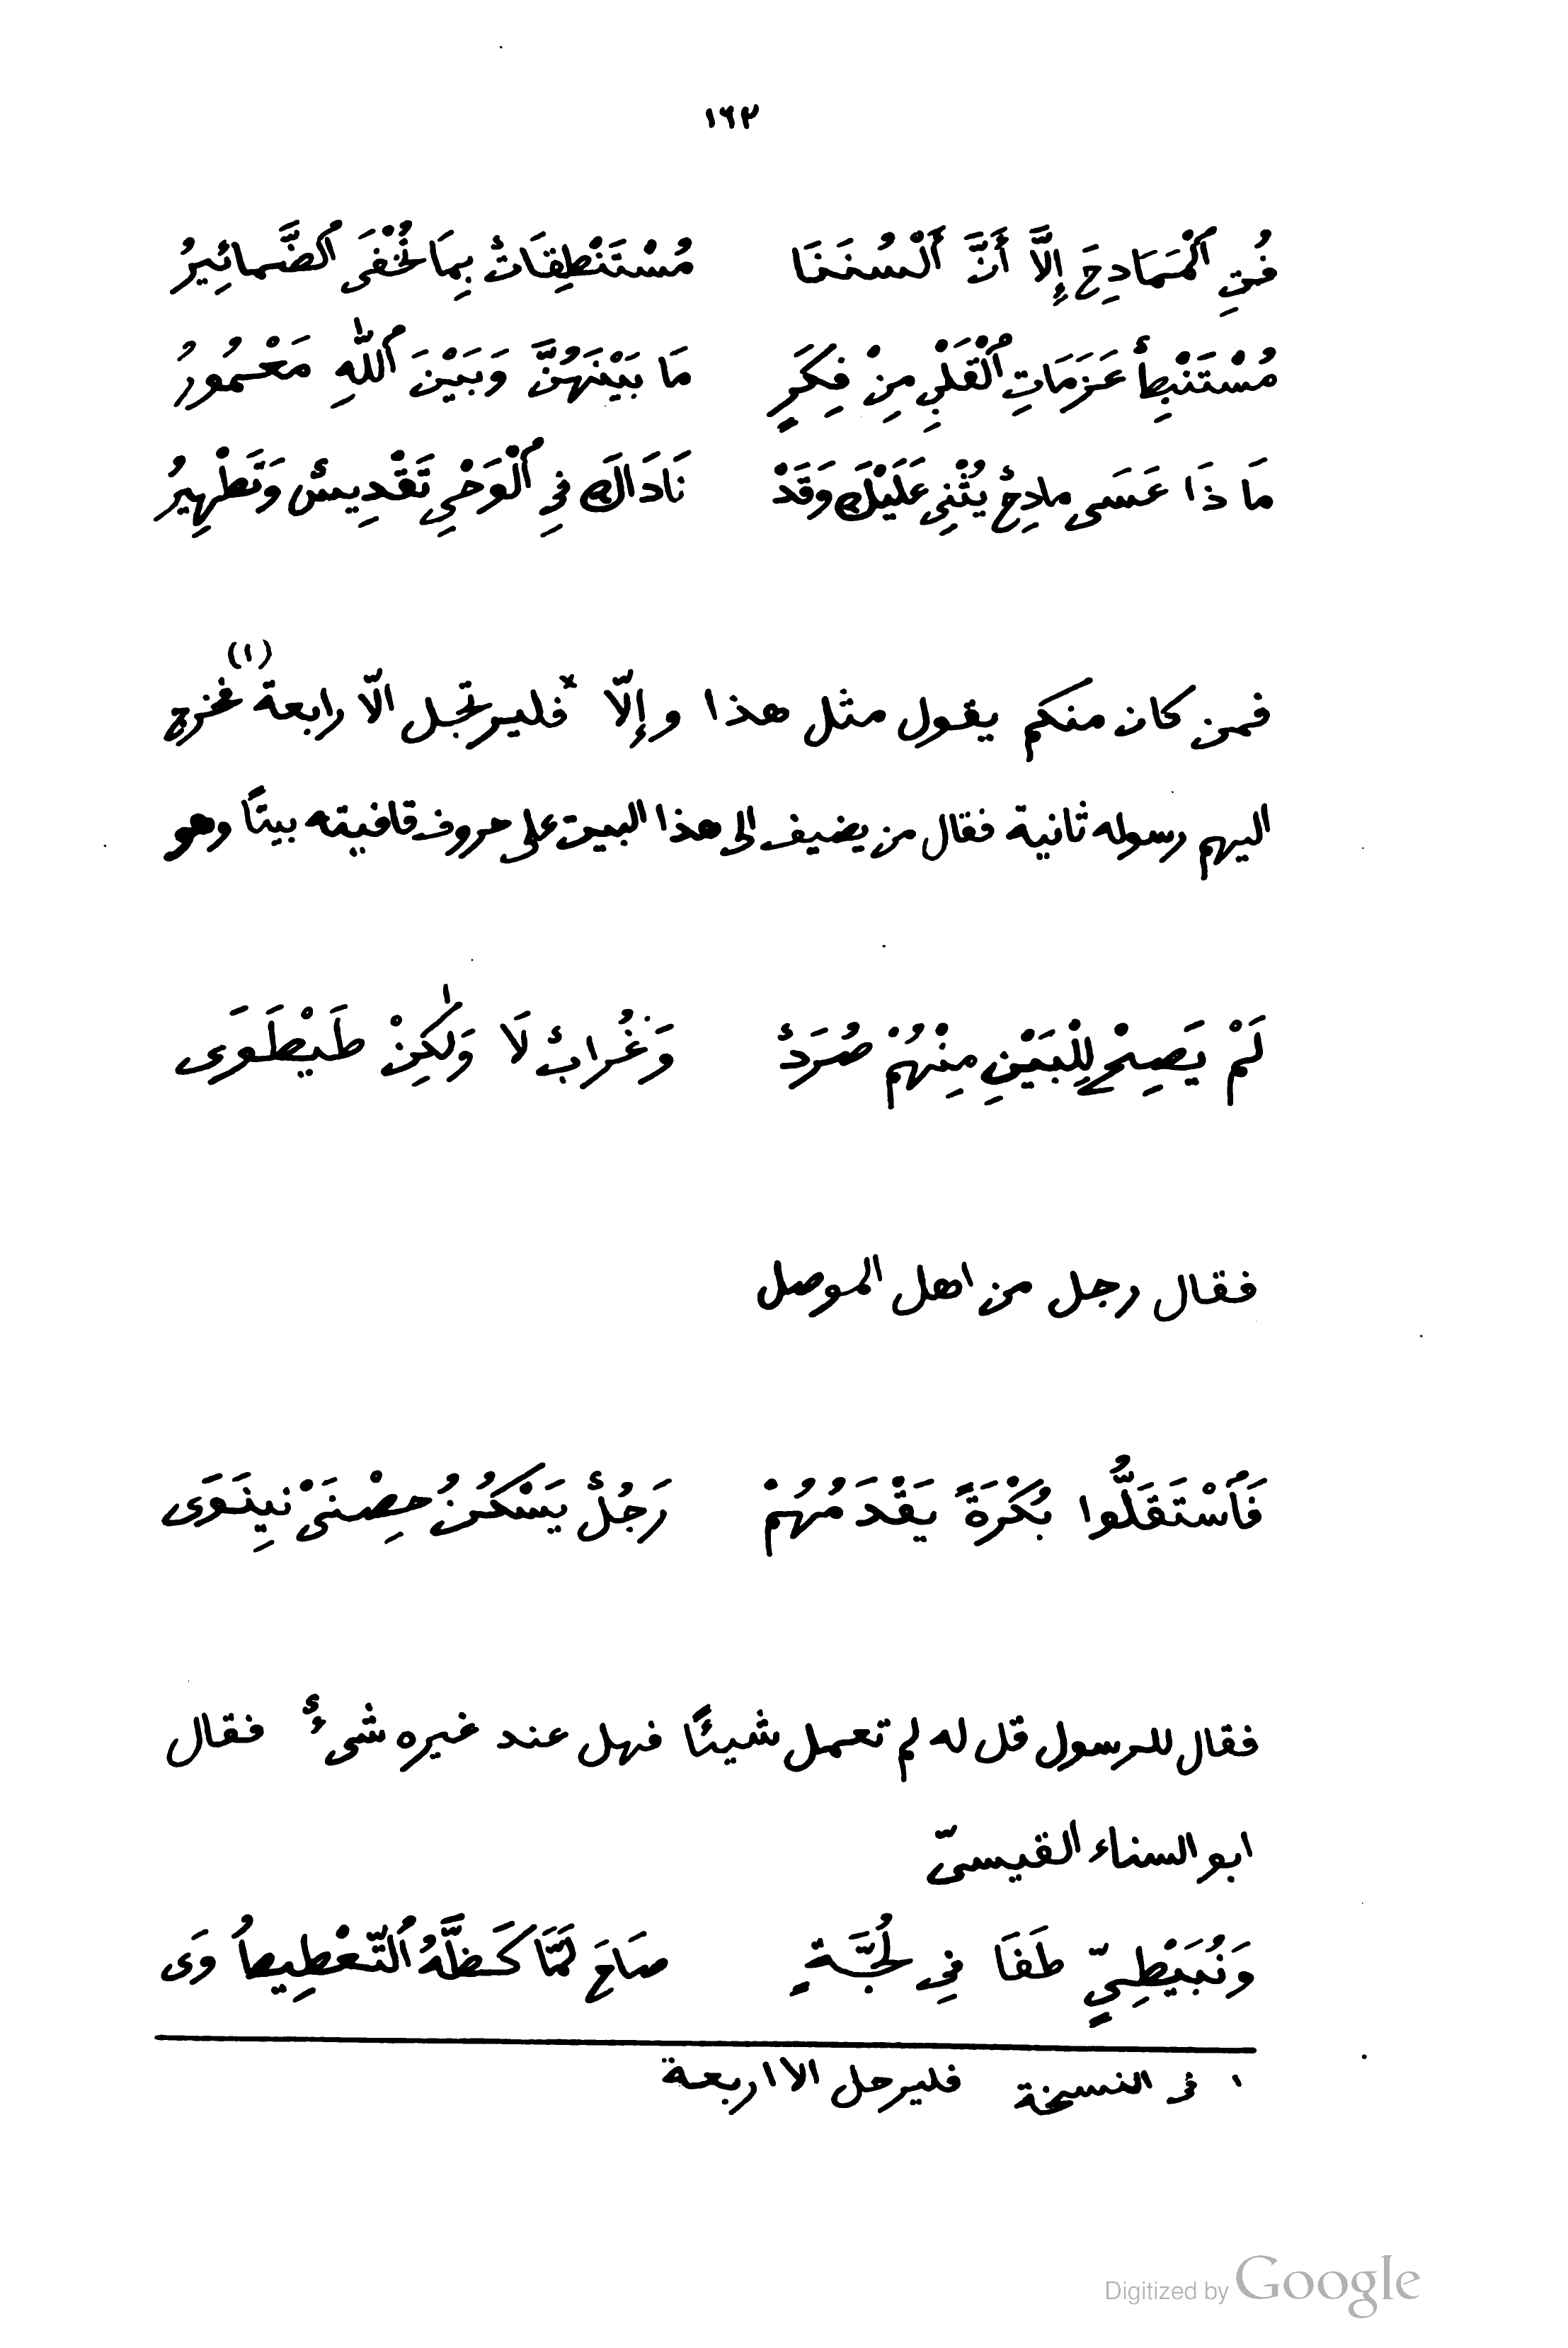 ١٦٢
فُتِ ٱلْمَمَادِحَ إِلَّا أَنَّ أَلْسُنَنَا مُسْتَنْطِقَاتٌ بِمَا تُخْفَى ٱلضَّمائِيرُ
مُسْتَنْبِطٌ عَزَمَاتِ ٱلْقَلْبِ مِنْ فِكَرٍ مَا بَيْنَهُنَّ وَبَيْنَ ٱللّٰهِ مَعْمُورُ
مَا ذَا عَسَى مادِحٌ يُثْنِى عَلَيْكَ وَقَدْ نَادَاكَ فِى ٱلْوَحْىِ تَقْدِيسٌ وَتَطْهِيرُ
فمن كان منكم يقول مثل هذا وإلّا * فليرتجل الّا رابعة (١) فخرج
اليهم رسوله ثانية فقال من يضيف الى هذا البيت على حروف قافيته بيتًا وهو
لَمْ يَصِحْ لِلْبَيْنِ مِنْهُمْ صُرَدٌ وَغُرابٌ لَا وَلٰكِنْ طَيْطَوَى
فقال رجل من اهل الموصل
فَٱسْتَقَلُّوا بُكْرَةً يَقْدَمُهُمْ رَجُلٌ يَسْكُنُ حِصْنَىْ نِينَوَى
فقال للرسول قل له لم تعمل شيئًا فهل عند غيره شىءٌ فقال
ابو السناء القيسىّ
وَنُبَيْطِىٍّ طَفَا فِى لُجَّةٍ صَاحَ لَمَّا كَظَّهُ ٱلتَّغْطِيطُ وَى
١ فى النسخة فليرحل الا اربعة
Digitized by Google